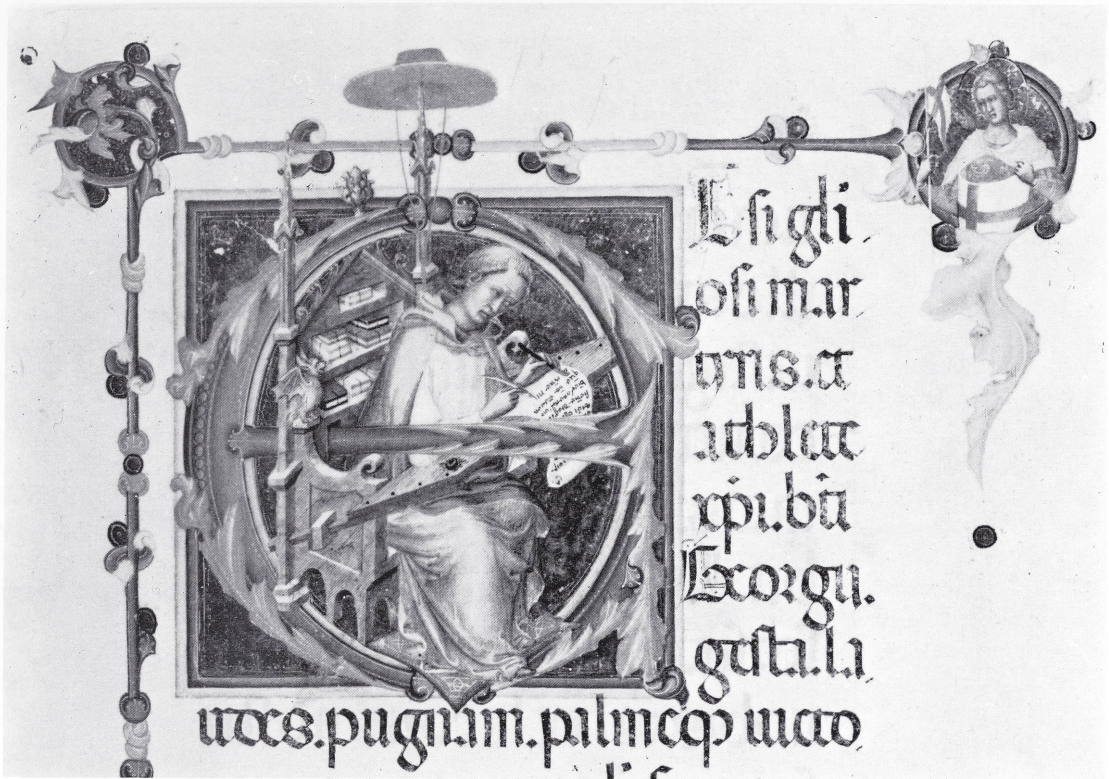 ETsi gli
osi mar
tyris. et
athlete
xp̄i. bt̄i
Georgii.
gesta. la
udes. pugnam. palmeq̄ uicto